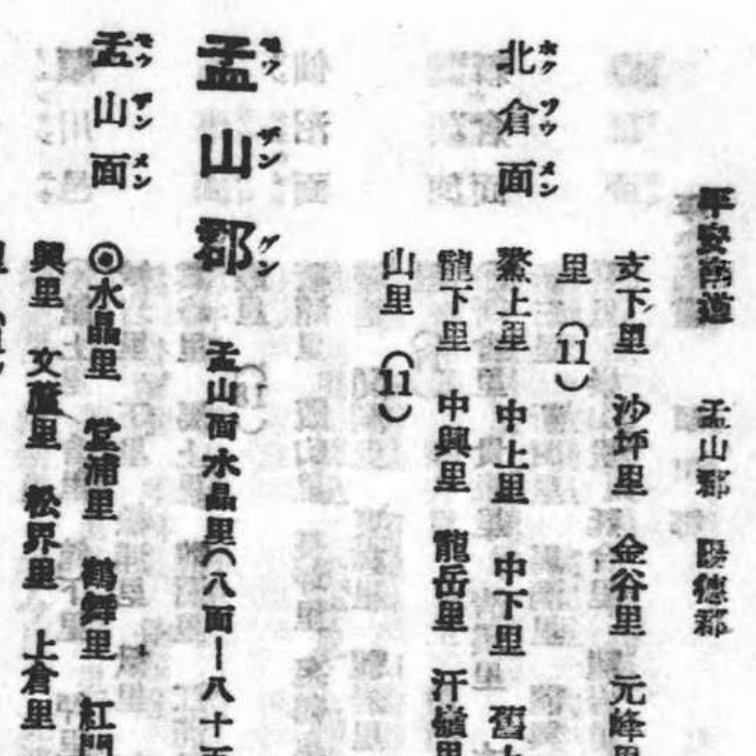 平安南道 孟山郡 陽德郡
支下里 沙坪里 金谷里 元峰里
里 (11)
北倉面 ホクサウメン
鰲上里 中上里 中下里 舊
龍下里 中興里 龍岳里 汗嶺里
山里 (11)
孟山郡 モウザングン 孟山面水晶里(八面ー八十
孟山面 モウザンメン
◎水晶里 堂浦里 鶴舞里 紅
興里 文 里 松界里 上倉里